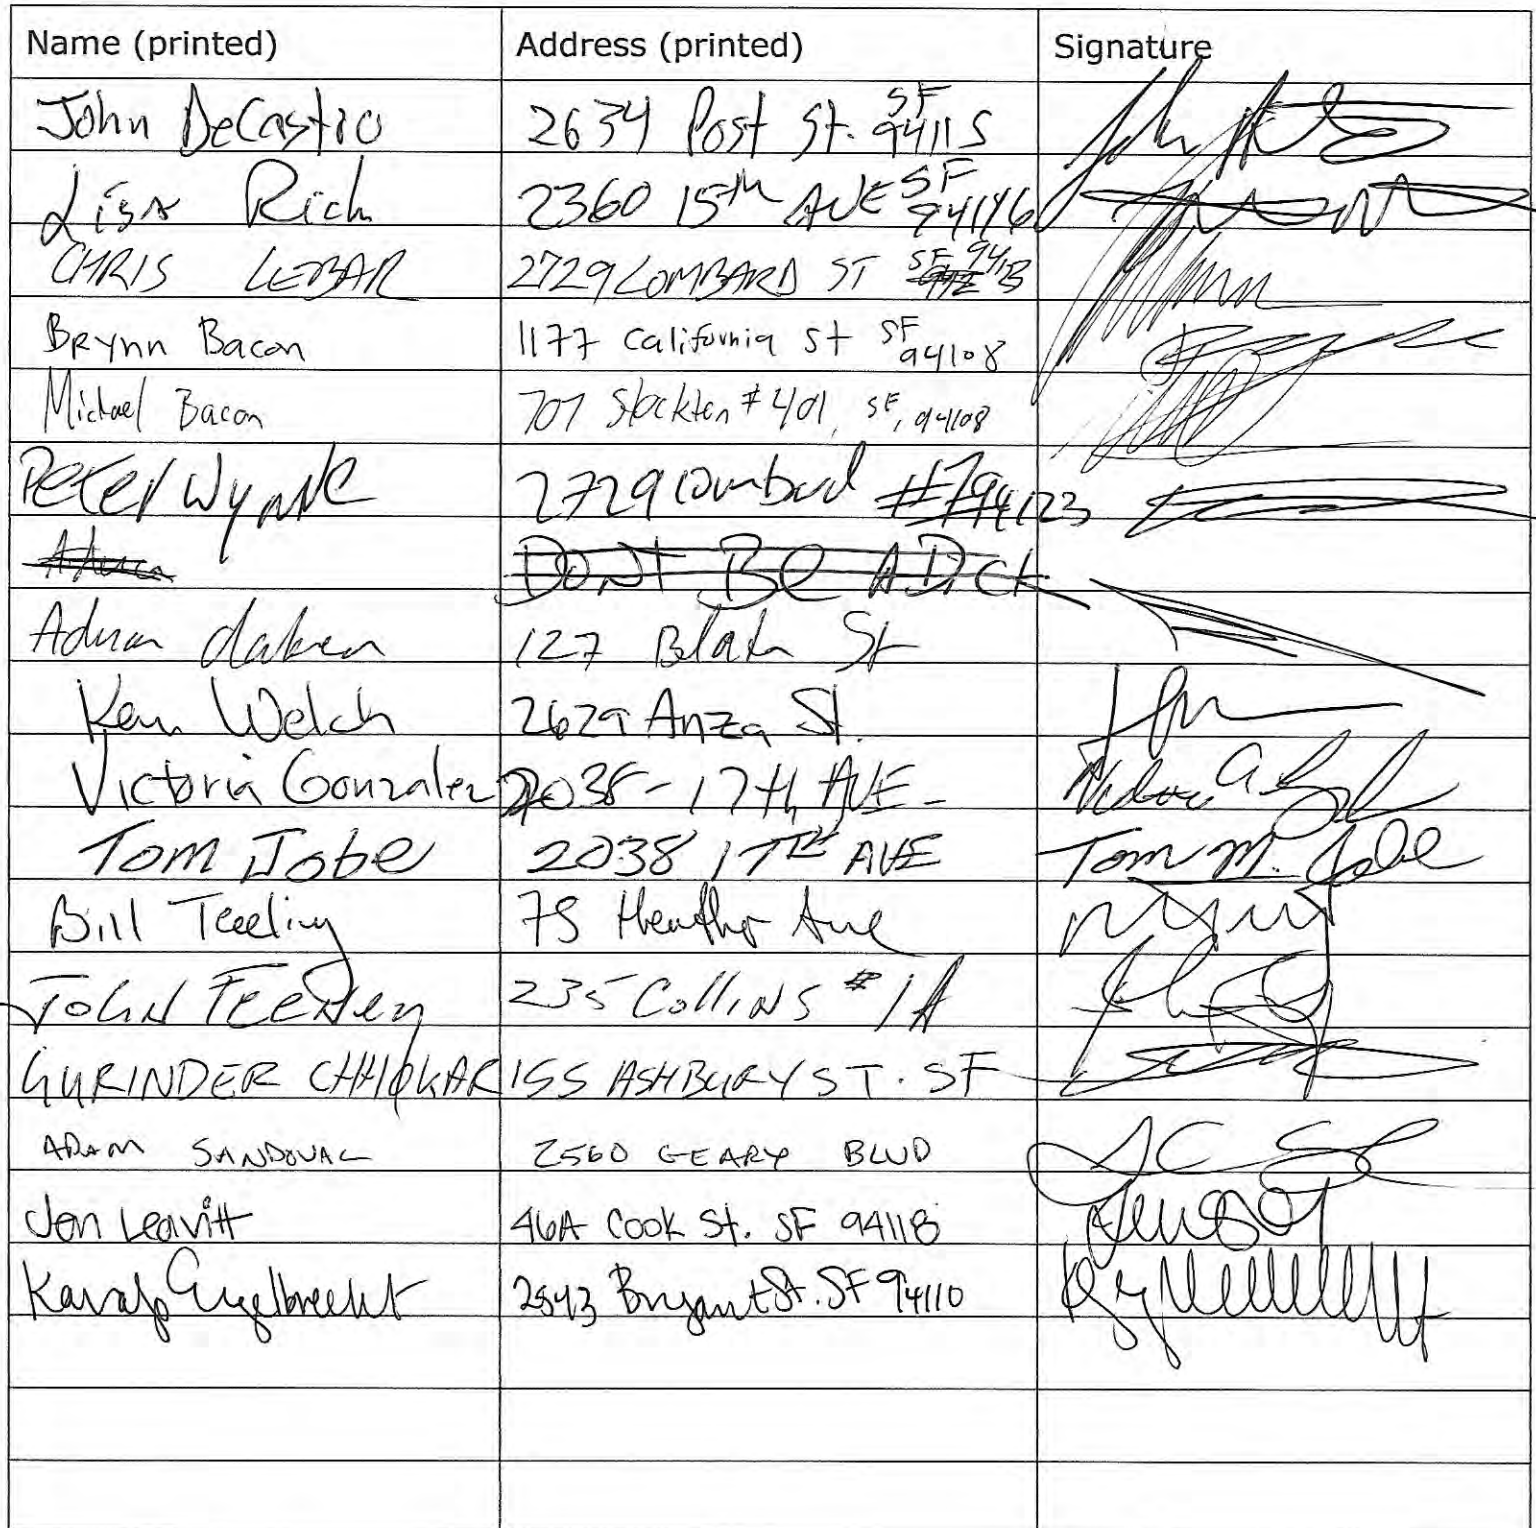 Name (printed) Address (printed) Signature
John DeCastro 2634 Post St. SF 94115
Lisa Rich 2360 15th AVE SF 94116
CHRIS LEBAR 2729 LOMBARD ST SF 94123
Brynn Bacon 1177 California St SF 94108
Michael Bacon 707 Stockton #401, SF, 94108
Peter Wynne 2729 Lombard #7 94123
DONT BE A DICK
127 St
Ken Welch 2629 Anza St.
Victoria Gonzalez 2038-17th AVE-
Tom Jobe 2038 17TH AVE Tom M. Jobe
Bill Teeling 75 Heather Ave
John Feeney 235 Collins #1A
GURINDER CHHOKAR 155 ASHBURY ST. SF
ADAM SANDOVAL 2560 GEARY BLVD
Jen Leavitt 46A Cook St. SF 94118
Engelbrecht 2543 Bryant St. SF 94110